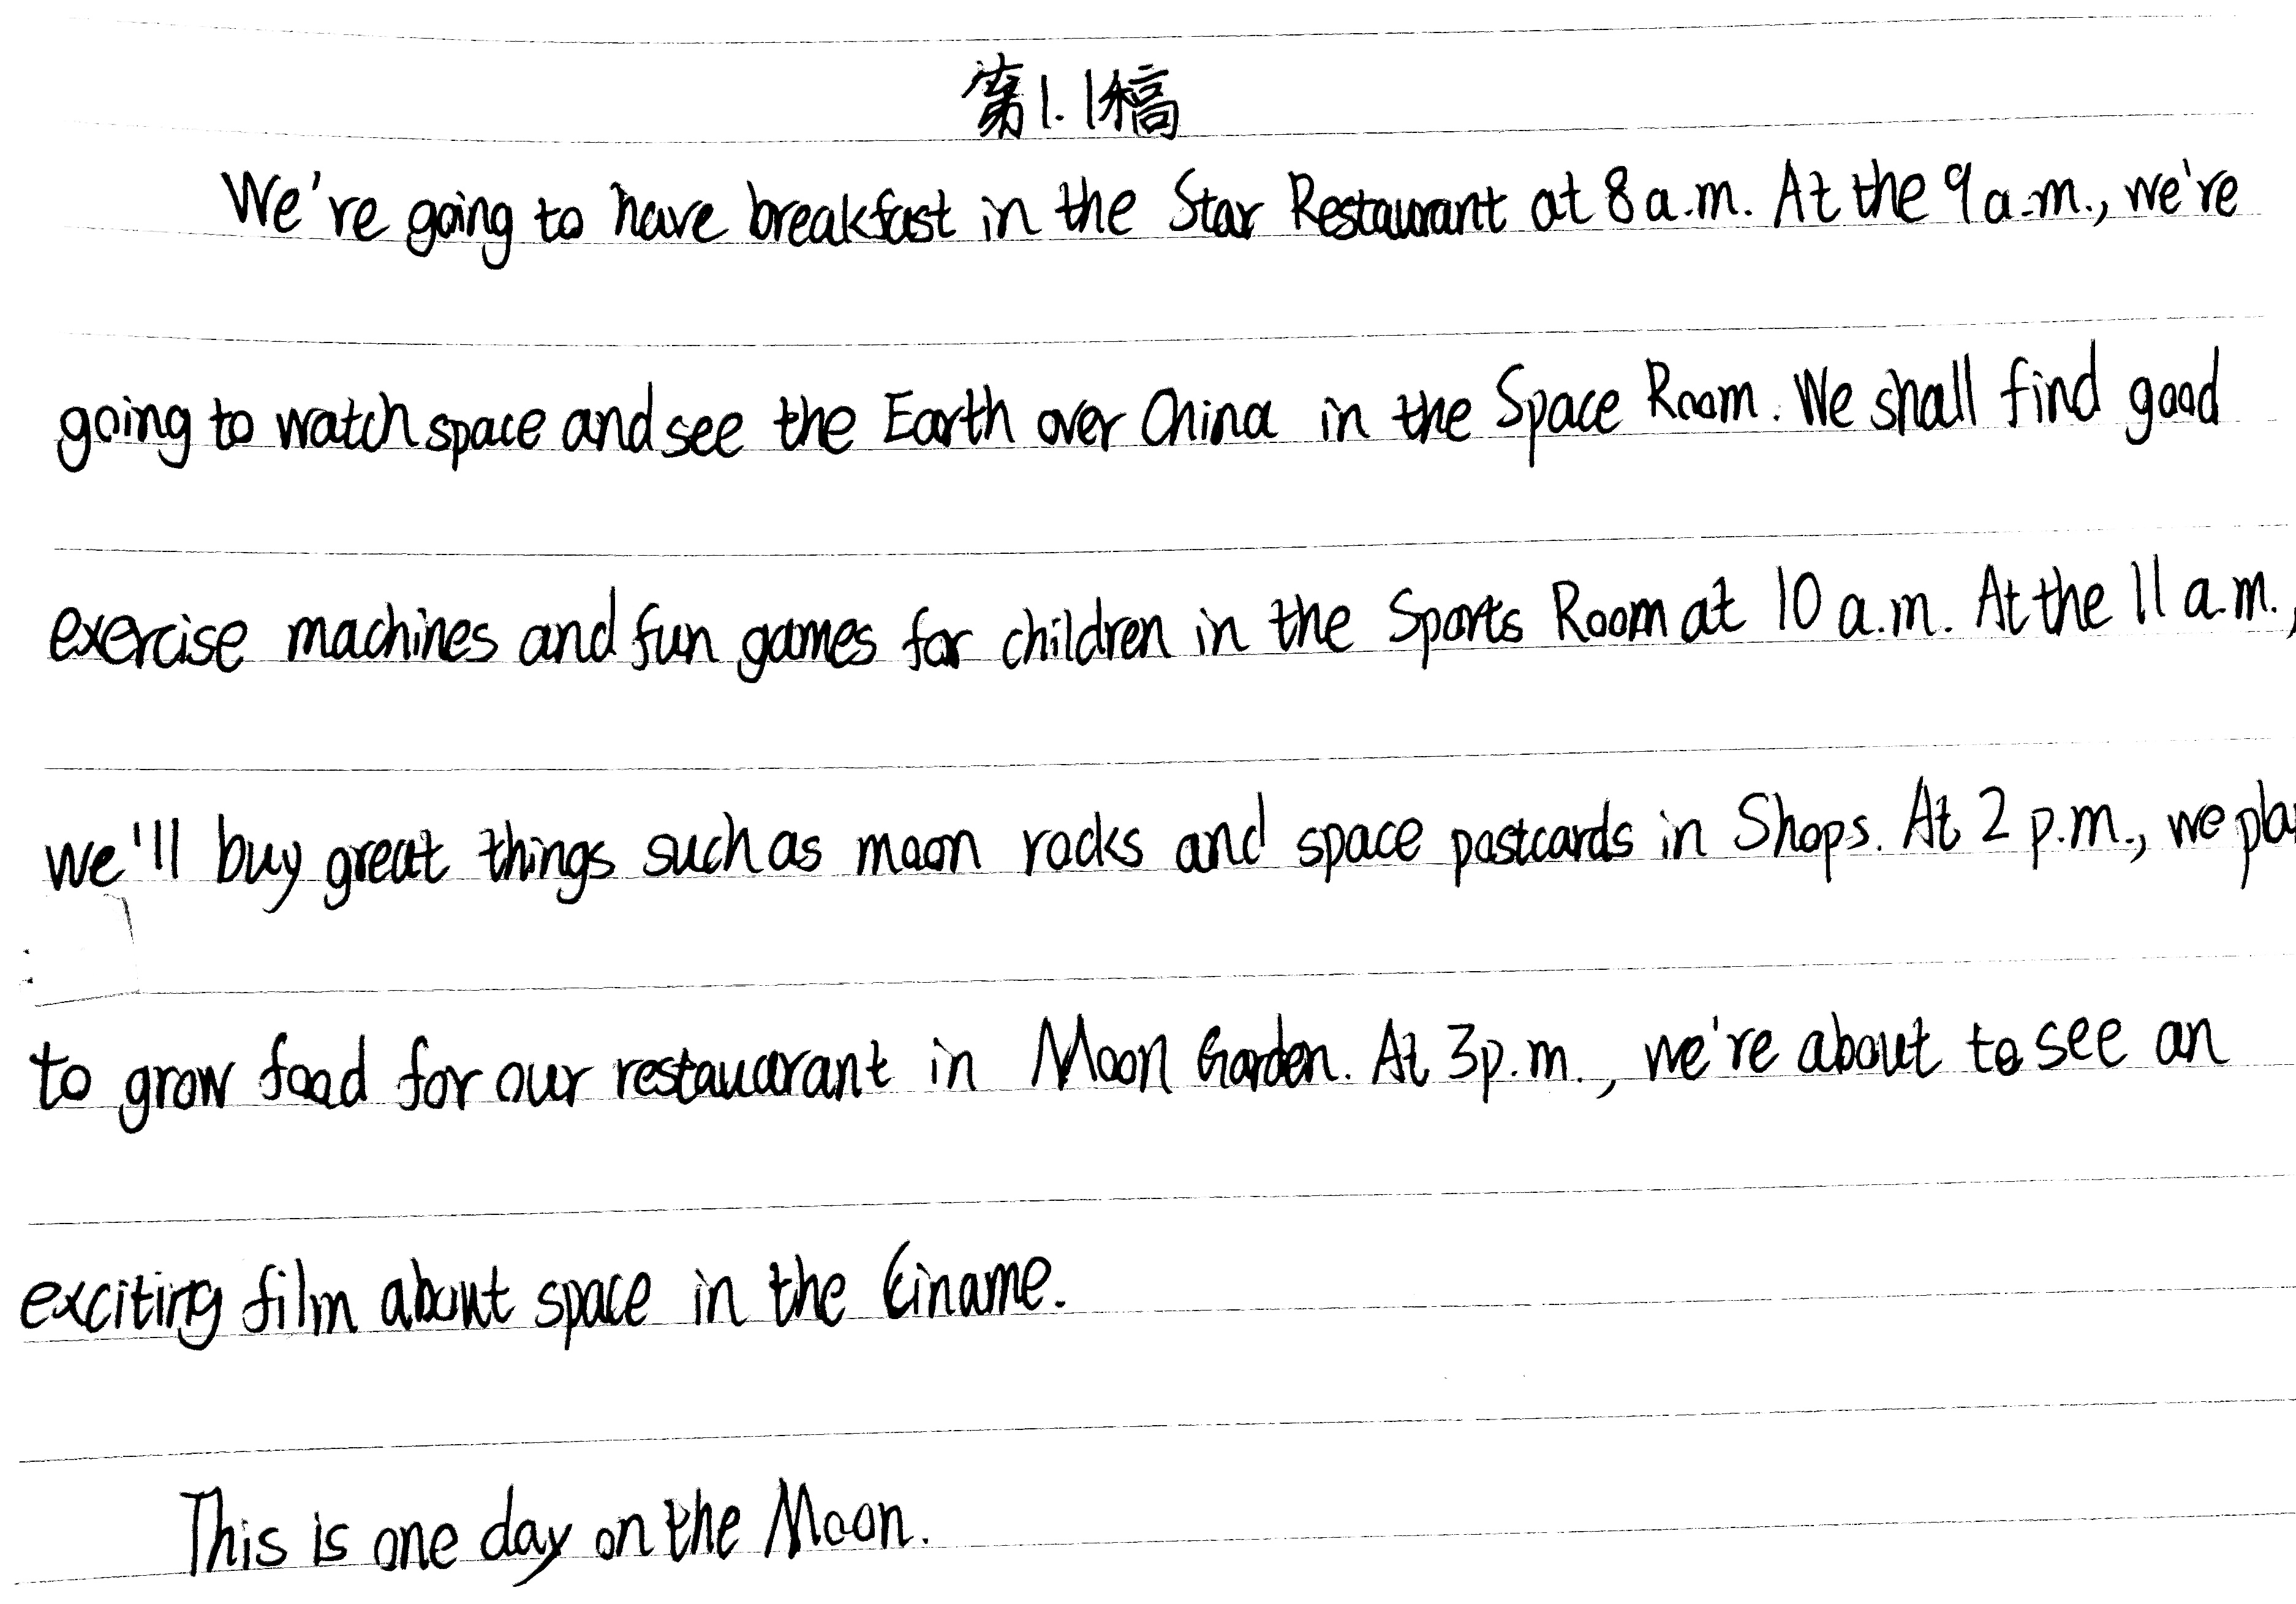 第1.1稿
We're going to have breakfast in the Star Restaurant at 8 a.m. At the 9 a.m., we're
going to watch space and see the Earth over China in the Space Room. We shall find good
exercise machines and fun games for children in the Sports Room at 10 a.m. At the 11 a.m.,
we'll buy great things such as moon rocks and space postcards in Shops. At 2 p.m., we pla
to grow food for our restauarant in Moon Garden. At 3p.m., we're about to see an
exciting film about space in the Ciname.
This is one day on the Moon.